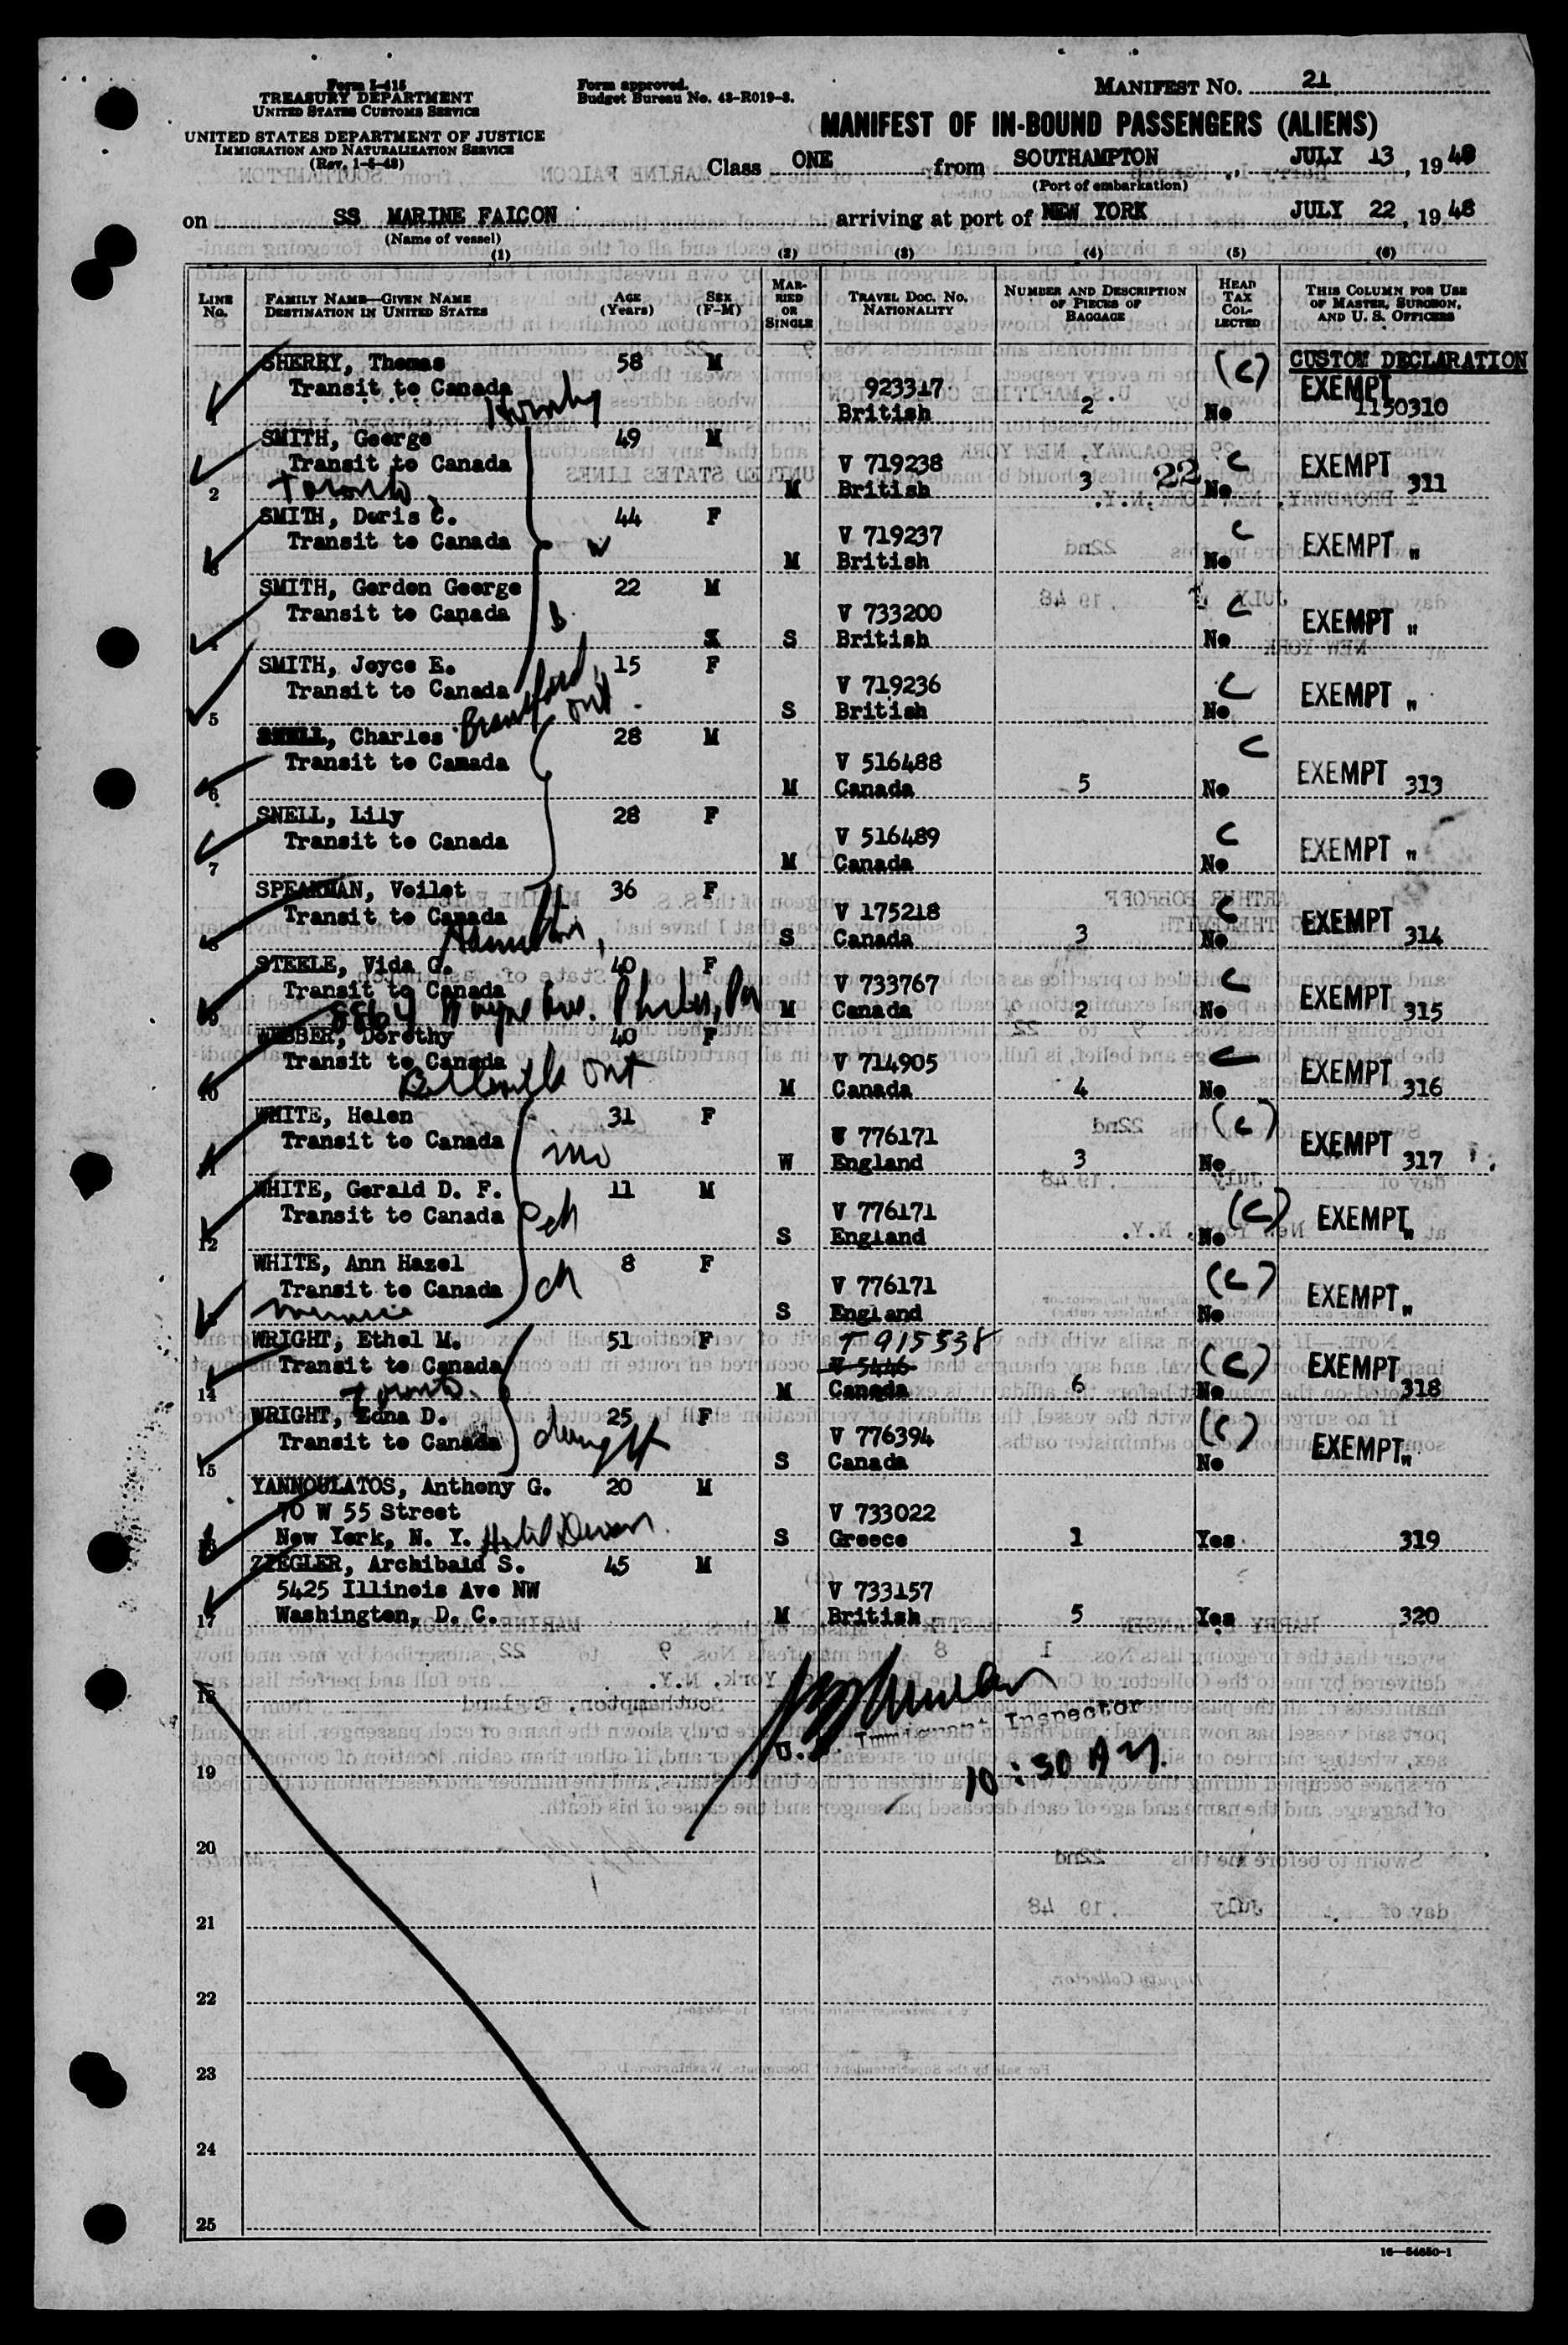 Form I-415
TREASURY DEPARTMENT
UNITED STATES CUSTOMS SERVICE
UNITED STATES DEPARTMENT OF JUSTICE
IMMIGRATION AND NATURALIZATION SERVICE
(Rev. 1-5-48)
Form approved.
Budget Bureau No. 43-R019-3.
MANIFEST NO. 21
MANIFEST OF IN-BOUND PASSENGERS (ALIENS)
Class ONE from SOUTHAMPTON, JULY 13, 1948
(Port of embarkation)
on SS MARINE FALCON arriving at port of NEW YORK JULY 22, 1948
(Name of vessel)
(1) (2) (3) (4) (5) (6)
LINE No. FAMILY NAME—GIVEN NAME DESTINATION IN UNITED STATES AGE (Years) SEX (F-M) MARRIED OR SINGLE TRAVEL DOC. NO. NATIONALITY NUMBER AND DESCRIPTION OF PIECES OF BAGGAGE HEAD TAX COLLECTED THIS COLUMN FOR USE OF MASTER, SURGEON, AND U. S. OFFICERS
SHERRY, Thomas 58 M (C) CUSTOM DECLARATION
Transit to Canada 923317 EXEMPT
1 British 2 No 1150310
SMITH, George 49 M
Transit to Canada V 719238 C EXEMPT
2 Toronto. M British 3 22 No 311
SMITH, Doris C. 44 F
Transit to Canada W V 719237 C EXEMPT "
3 M British No
SMITH, Gordon George 22 M
Transit to Canada V 733200 C EXEMPT "
4 X S British No
SMITH, Joyce E. 15 F
Transit to Canada V 719236 C EXEMPT "
5 Brantford, Ont. S British No
SNELL, Charles 28 M
Transit to Canada V 516488 C EXEMPT
6 M Canada 5 No 313
SNELL, Lily 28 F
Transit to Canada V 516489 C EXEMPT "
7 M Canada No
SPEAKMAN, Veilet 36 F
Transit to Canada V 175218 C EXEMPT
8 Hamilton, S Canada 3 No 314
STEELE, Vida G. 40 F
Transit to Canada V 733767 C EXEMPT
9 Wayne Ave. Phila, Pa M Canada 2 No 315
WEBBER, Dorothy 40 F
Transit to Canada V 714905 C EXEMPT
10 Belleville Ont M Canada 4 No 316
WHITE, Helen 31 F
Transit to Canada mo V 776171 (C) EXEMPT
11 W England 3 No 317
WHITE, Gerald D. F. 11 M
Transit to Canada ch V 776171 (C) EXEMPT "
12 S England No
WHITE, Ann Hazel 8 F
Transit to Canada ch V 776171 (C) EXEMPT "
S England No
WRIGHT, Ethel M. 51 F T 915538
Transit to Canada V 5446 (C) EXEMPT
14 Toronto. M Canada 6 No 318
WRIGHT, Edna D. 25 F
Transit to Canada daught V 776394 (C) EXEMPT "
15 S Canada No
YANNOULATOS, Anthony G. 20 M
70 W 55 Street V 733022
16 New York, N. Y. Hotel S Greece 1 Yes 319
ZIEGLER, Archibald S. 45 M
5425 Illinois Ave NW V 733157
17 Washington, D. C. M British 5 Yes 320
18
U.S. Immigrant Inspector
19 10:30 AM.
20
21
22
23
24
25
16—54650-1